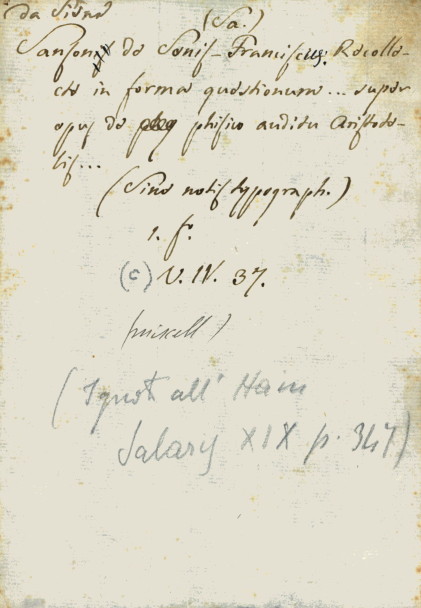 da Siena
(Sa.)
Sansonis de Senis - Franciscus. Recolle-
ctae in forma quaestionum ... super
opus de phisico auditu Aristote-
lis...
(Sine notis typograph.)
1. f.º
(c) V. IV. 37.
(miscell)
(Ignoto all' Hain
p. 347)